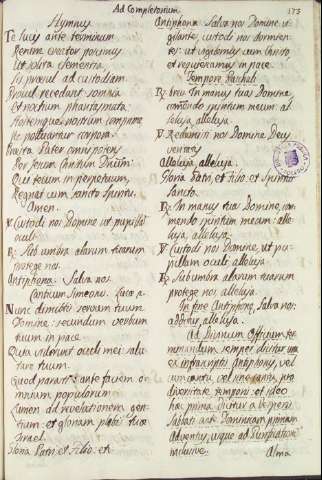 Ad Completorium.
173
Hymnus
Te lucis ante terminum
Rerum creator poscimus
Ut solita clementia
Sis præsul ad custodiam
Procul recedant somnia
Et noctium phantasmata:
Hostemque nostrum comprime
Ne polluantur corpora.
Præsta Pater omnipotens
Per Jesum Christum Dnum:
Qui tecum in perpetuum,
Regnat cum sancto Spiritu.
Amen.
V. Custodi nos Domine ut pupillam
oculi.
R. Sub umbra alarum tuarum
protege nos.
Antiphona. Salva nos.
Canticum Simeonis. Lucæ 2.
Nunc dimittis servum tuum
Domine: secundum verbum
tuum in pace.
Quia viderunt oculi mei: salu
tare tuum.
Quod parasti: ante faciem om
nium populorum.
Lumen ad revelationem gen
tium: et gloriam plebis tuæ
Israel.
Gloria Patri, et Filio. et
Antiphona. Salva nos Domine vi
gilantes, custodi nos dormien
tes: ut vigilemus cum Christo
et requiescamus in pace.
Tempore Paschali.
R. brev. In manus tuas Domine
commendo spiritum meum: al
leluja, alleluja.
V. Redemisti nos Domine Deus
veritatis
Alleluja, alleluja.
Gloria Patri, et Filio, et Spiritui
Sancto.
R. In manus tuas Domine, com
mendo spiritum meum: alle
luja, alleluja.
V. Custodi nos Domine, ut pu
pillam oculi. alleluja.
R. Sub umbra alarum tuarum
protege nos, alleluja.
In fine Antiphonæ, Salva nos:
additur, alleluja.
Ad Divinum Officium ter
minandum semper dicitur una
ex infrascriptis Antiphonis, vel
cum cantu, vel sine cantu, pro
diversitate temporis: et ideo
hæc prima dicitur a Vesperis
Sabbati ante Dominicam primam
Adventus, usque ad Purificationem
inclusive.
Alma